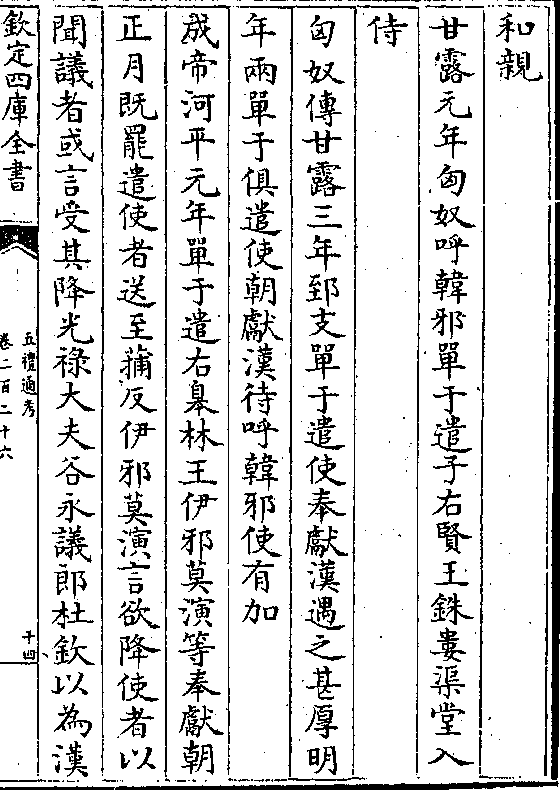 和親
甘露元年匈奴呼韓邪單于遣子右賢王銖婁渠堂入
侍
匈奴傳甘露三年郅支單于遣使奉獻漢遇之甚厚明
年兩單于俱遣使朝獻漢待呼韓邪使有加
成帝河平元年單于遣右皋林王伊邪莫演等奉獻朝
正月既罷遣使者送至蒲反伊邪莫演言欲降使者以
聞議者或言受其降光祿大夫谷永議郎杜欽以為漢
欽定四庫全書
五禮通考
卷二百二十六
十四